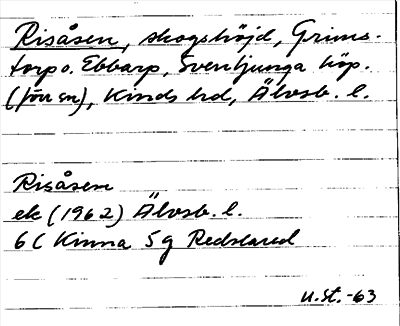 Risåsen, skogshöjd, Grims-
torp o. Ebbarp, Svenljunga köp.
(förr sn), Kinds hd, Älvsb. l.
Risåsen
ek (1962) Älvsb. l.
6 C Kinna 5 g Redslared
U. St. -63